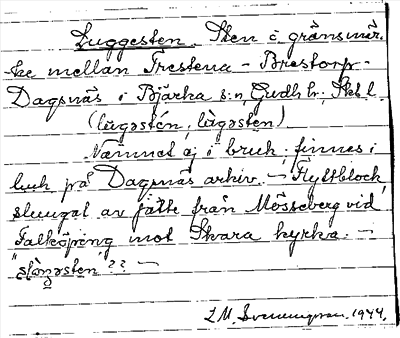 Luggesten. Sten o gränsmär-
ke mellan Trestena - Brestorp -
Dagsnäs i Bjärka s:n, Gudh. hr, Skbl.
(lùgəstén, lùgəsten)
Namnet ej i bruk; finnes i
bok på Dagsnäs arkiv. - Flyttblock
slungat av jätte från Mösseberg vid
Falköping mot Skara kyrka. -
"slàŋəsten"?? -
1944.